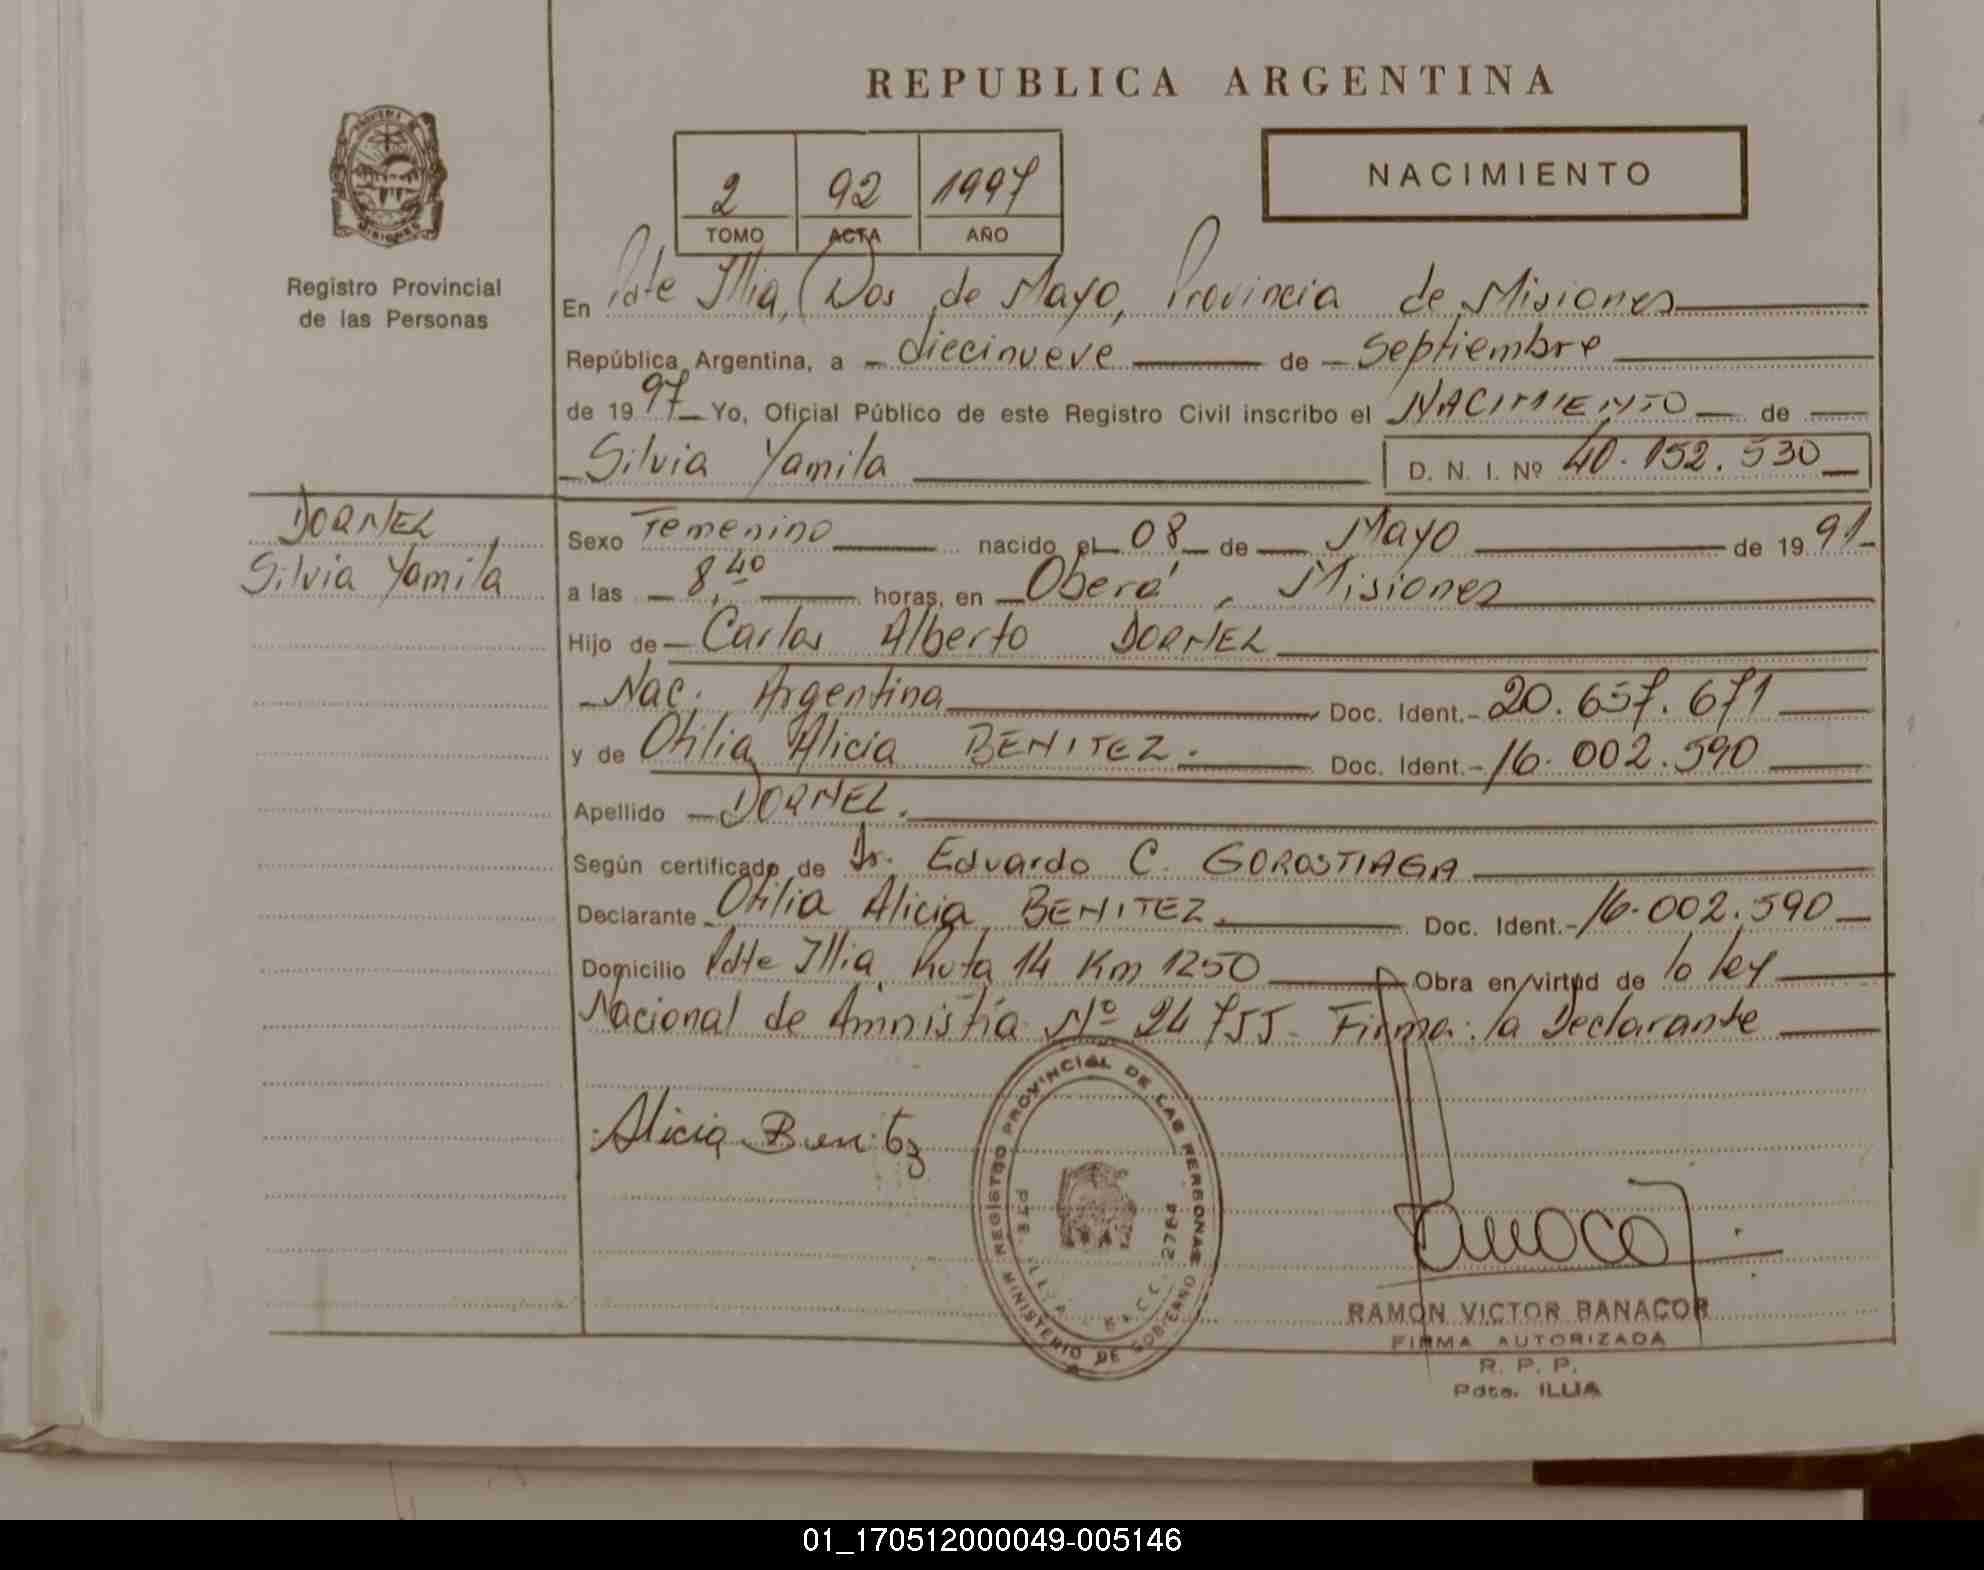 REPUBLICA ARGENTINA
NACIMIENTO
2 92 1997
TOMO ACTA AÑO
PROVINCIA DE
MISIONES
Registro Provincial
de las Personas
En Pdte Illia, (Dos de Mayo, Provincia de Misiones
República Argentina, a diecinueve de Septiembre
de 19 97 Yo, Oficial Público de este Registro Civil inscribo el NACIMIENTO de
Silvia Yamila D. N. I. Nº 40.152.530
DORNEL
Silvia Yamila
Sexo Femenino nacido el 08 de Mayo de 19 91
a las 8,40 horas, en Oberá, Misiones
Hijo de Carlos Alberto DORNEL
Nac. Argentina Doc. Ident.- 20.657.671
y de Otilia Alicia BENITEZ. Doc. Ident.- 16.002.590
Apellido DORNEL.
Según certificado de Dr. Eduardo C. GOROSTIAGA
Declarante Otilia Alicia BENITEZ. Doc. Ident.- 16.002.590
Domicilio Pdte Illia, Ruta 14 Km 1250 Obra en virtud de la ley
Nacional de Amnistía Nº 24755- Firma: la Declarante
Alicia Benitez
REGISTRO PROVINCIAL DE LAS PERSONAS
MINISTERIO DE GOBIERNO
PDTE. ILLIA 2764
RAMON VICTOR BANACOR
FIRMA AUTORIZADA
R. P. P.
Pdte. ILLIA
01_170512000049-005146